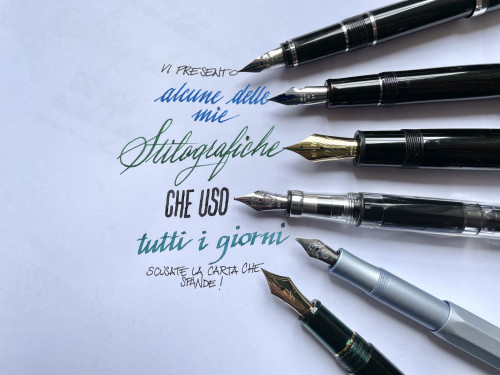 VI PRESENTO
alcune delle
mie
Stilografiche
CHE USO
tutti i giorni
SCUSATE LA CARTA CHE
SPANDE!